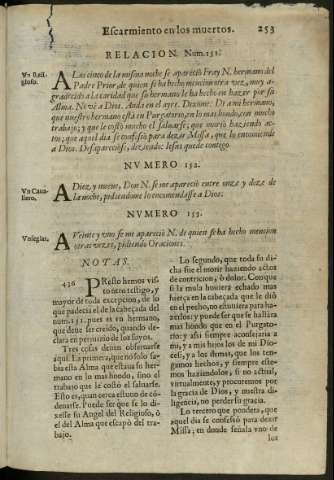 Escarmiento en los muertos. 253
RELACION. Num. 151.
Vn Reli-
gioso.
A Las cinco de la misma noche se apareciò Fray N. hermano del
Padre Prior, de quien se ha hecho mencion otra vez, muy a-
gradecido a la caridad que su hermano le ha hecho en hazer por su
Alma. No vè a Dios. Anda en el ayre. Dixome: Di a mi hermano,
que nuestro hermano està en Purgatorio, en lo mas hondo, con mucho
trabajo; y que le costò mucho el salvarse, que muriò haziendo ac-
tos, que aquel dia se confessò para dezir Missa, que lo encomiende
a Dios. Desapareciose, diziendo: Iesus quede contigo.
NVMERO 152.
Vn Caua-
llero.
A Diez y nueue, Don N. se me apareciò entre onze y doze de
la noche, pidiendome lo encomendasse a Dios.
NVMERO 153.
Vn seglar.
A Veinte y uno se me apareciò N. de quien se ha hecho mencion
otras vezes, pidiendo Oraciones.
NOTAS.
436 PResto hemos vis-
to otro testigo, y
mayor de toda excepcion, de lo
que padecia el de la cabeçada del
num. 131. pues es su hermano,
que deve ser creido, quando de-
clara en perjuizio de los suyos.
Tres cosas deven observarse
aqui. La primera, que no solo sa-
bia esta Alma que estava su her-
mano en lo mas hondo, sino el
trabajo que le costò el salvarse.
Esto es, quan cerca estuvo de cò-
denarse. Puede ser que se lo di-
xesse su Angel del Religioso, ò
el del Alma que escapò del tra-
bajo.
Lo segundo, que toda su di-
cha fue el morir haziendo actos
de contricion, ò dolor. Conque
si la mula huviera echado mas
fuerça en la cabeçada que le diò
en el pecho, no estuviera para ha-
zerlos; y puede ser que se hallàra
mas hondo que en el Purgato-
rio; y assi siempre aconsejaria a
mi, y a mis hijos los de mi Dio-
cesi, y a los demas, que los ten-
gamos hechos, y siempre este-
mos haziendolos, si no actual,
virtualmente, y procuremos por
la gracia de Dios, y nuestra di-
ligencia, no perder su gracia.
Lo tercero que pondera, que
aquel dia se confessò para dezir
Missa; en donde señala vno de
los